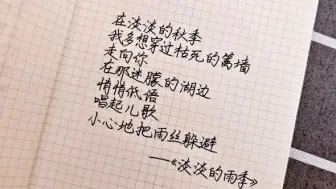 在淡淡的秋季
我多想穿过枯死的篱墙
走向你
在那迷朦的湖边
悄悄低语
唱起儿歌
小心地把雨丝躲避
—《淡淡的雨季》